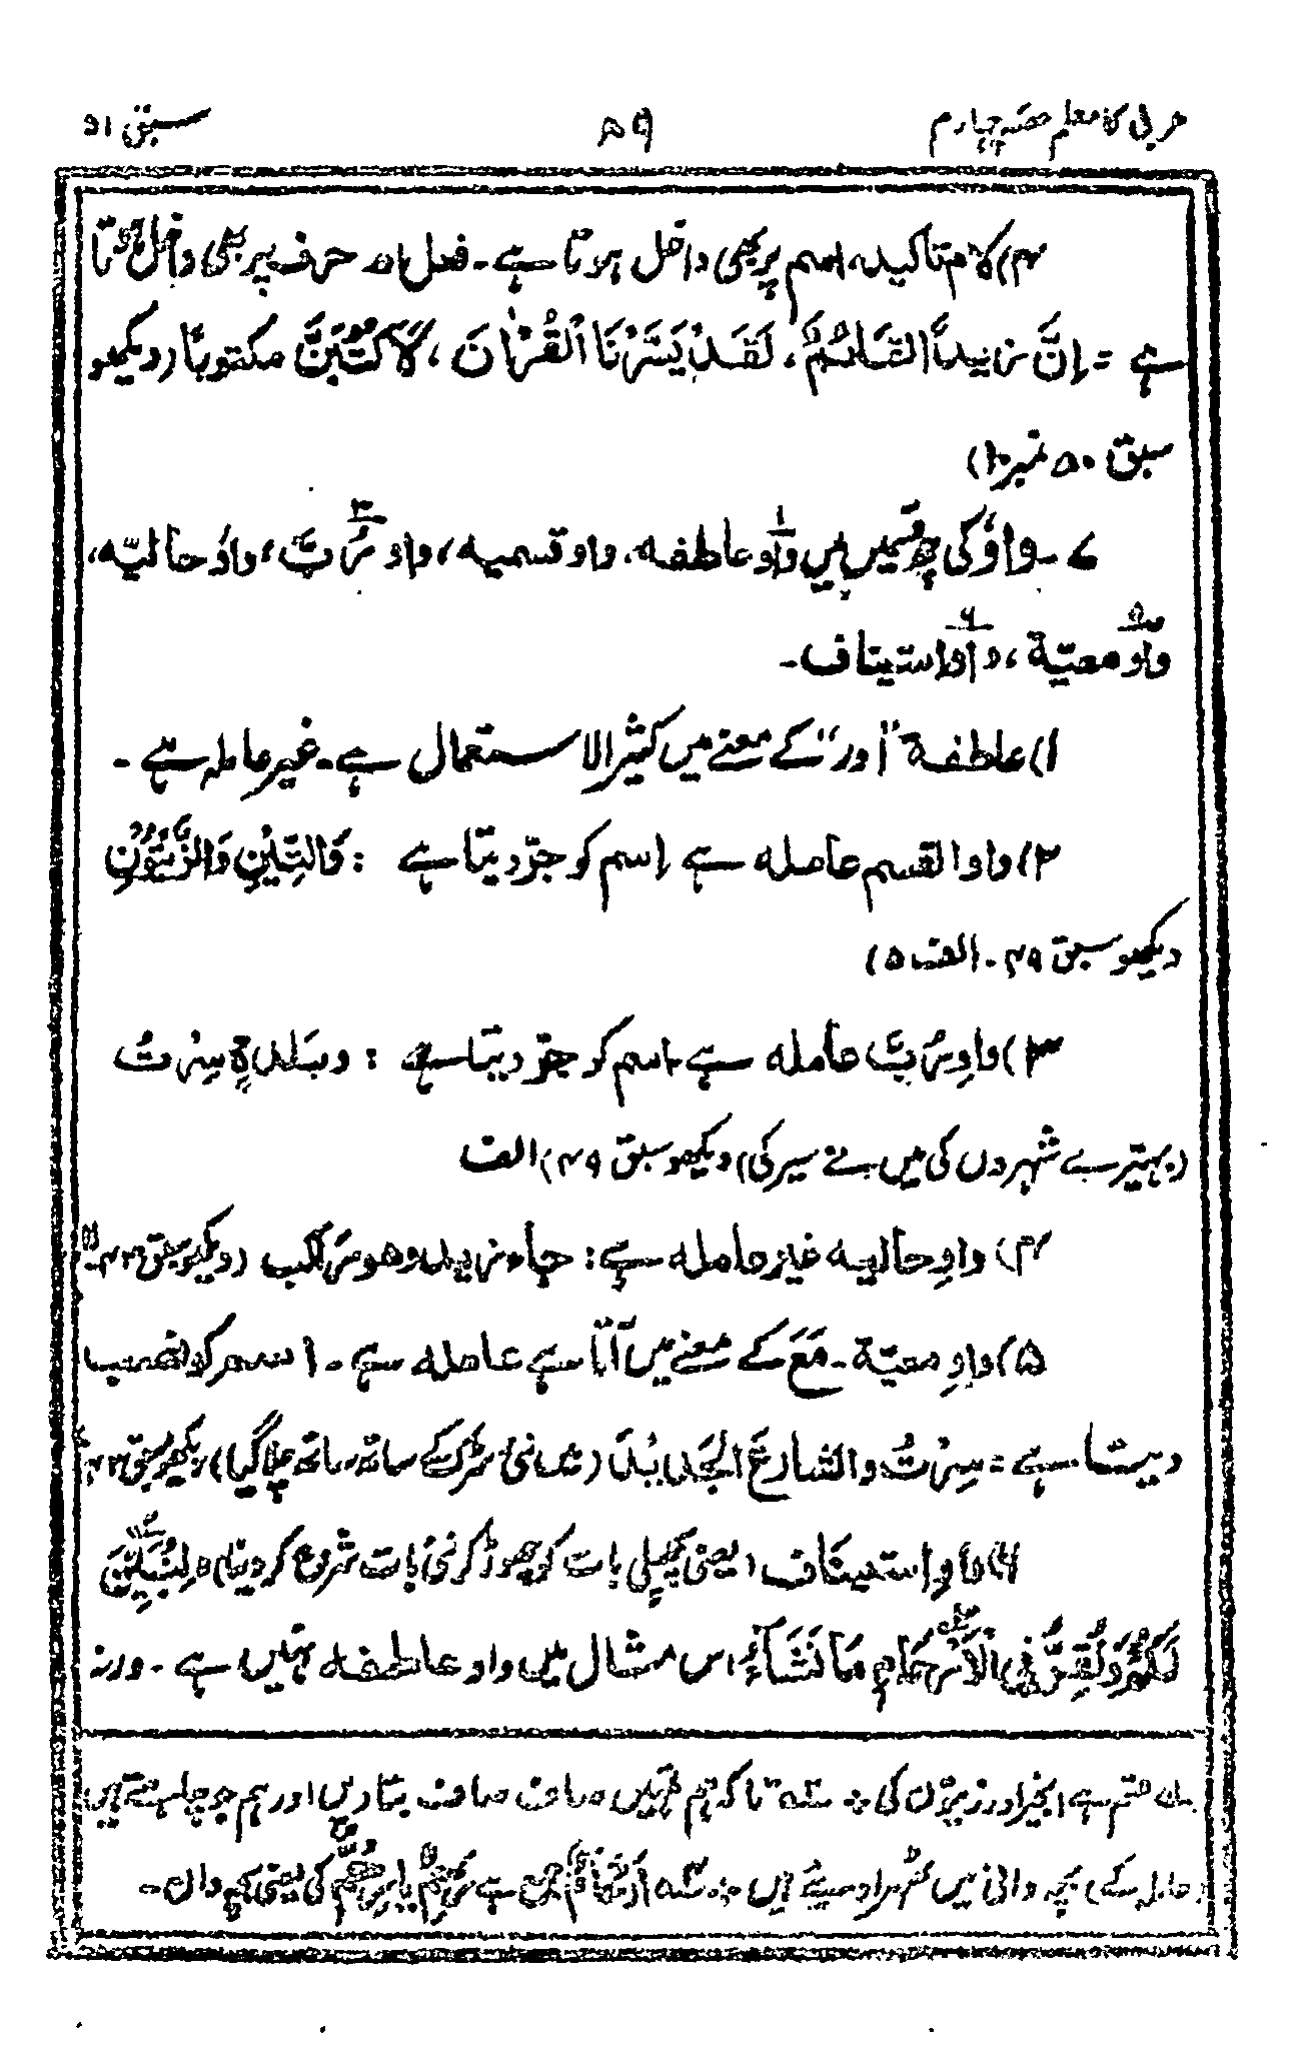 عربی کا معلم حصہ چہارم ۵۹ سبق ۵۱
۴) لام تاکید، اسم پر بھی داخل ہوتا ہے۔ فعل اور حرف پر بھی داخل ہوتا
ہے = اِنَّ زیدًا لقائمٌ، لَقَدْ یَسَّرْنَا الْقُرْاٰنَ، لَاَکْتُبَنَّ مکتوبًا (دیکھو
سبق ۵۰ نمبر ۱)
۷۔ واؤ کی چھ قسمیں ہیں واو عاطفہ، واو قسمیہ، واو رُبَّ، واؤ حالیّہ،
واو معیّة، واو استیناف۔
۱) عاطفة "اور" کے معنے میں کثیر الاستعمال ہے۔ غیر عاملہ ہے۔
۲) واو القسم عاملہ ہے اسم کو جرّ دیتا ہے : وَالتِّیْنِ وَالزَّیْتُوْنِ
دیکھو سبق ۴۹۔ الف ۵)
۳) واوِ رُبَّ عاملہ ہے اسم کو جرّ دیتا ہے : وبَلدةٍ سِرْتُ
(بہتیرے شہروں کی میں نے سیر کی) دیکھو سبق ۴۹) الف
۴) واوِ حالیہ غیر عاملہ ہے : جاء زیدٌ وھو راکب (دیکھو سبق ۴۳
۵) واوِ معیّة۔ مَعَ کے معنے میں آتا ہے عاملہ ہے۔ اسم کو نصب
دیتا ہے = سِرْتُ والشارعَ الجَدِیْدَ (میں نئی سڑک کے ساتھ ساتھ چلا گیا) دیکھو سبق ۴۳
۶) واوِ استیناف (یعنی پچھلی بات کو چھوڑ کر نئی بات شروع کر دینا) لِنُبَیِّنَ
لَکُمْ وَنُقِرُّ فِی الْاَرْحَامِ مَا نَشَآءُ اس مثال میں واو عاطفہ نہیں ہے۔ ورنہ
لہ قسم ہے انجیر اور زیتون کی ؞ سلہ تاکہ ہم تمہیں صاف صاف بتا دیں اور ہم جو چاہتے ہیں
(حاملہ کے) بچہ دانی میں ٹھہرا دیتے ہیں ؞ سلہ اَرْحَام جمع ہے رَحِمٌ یا رِحْمٌ کی یعنی بچہ دان۔